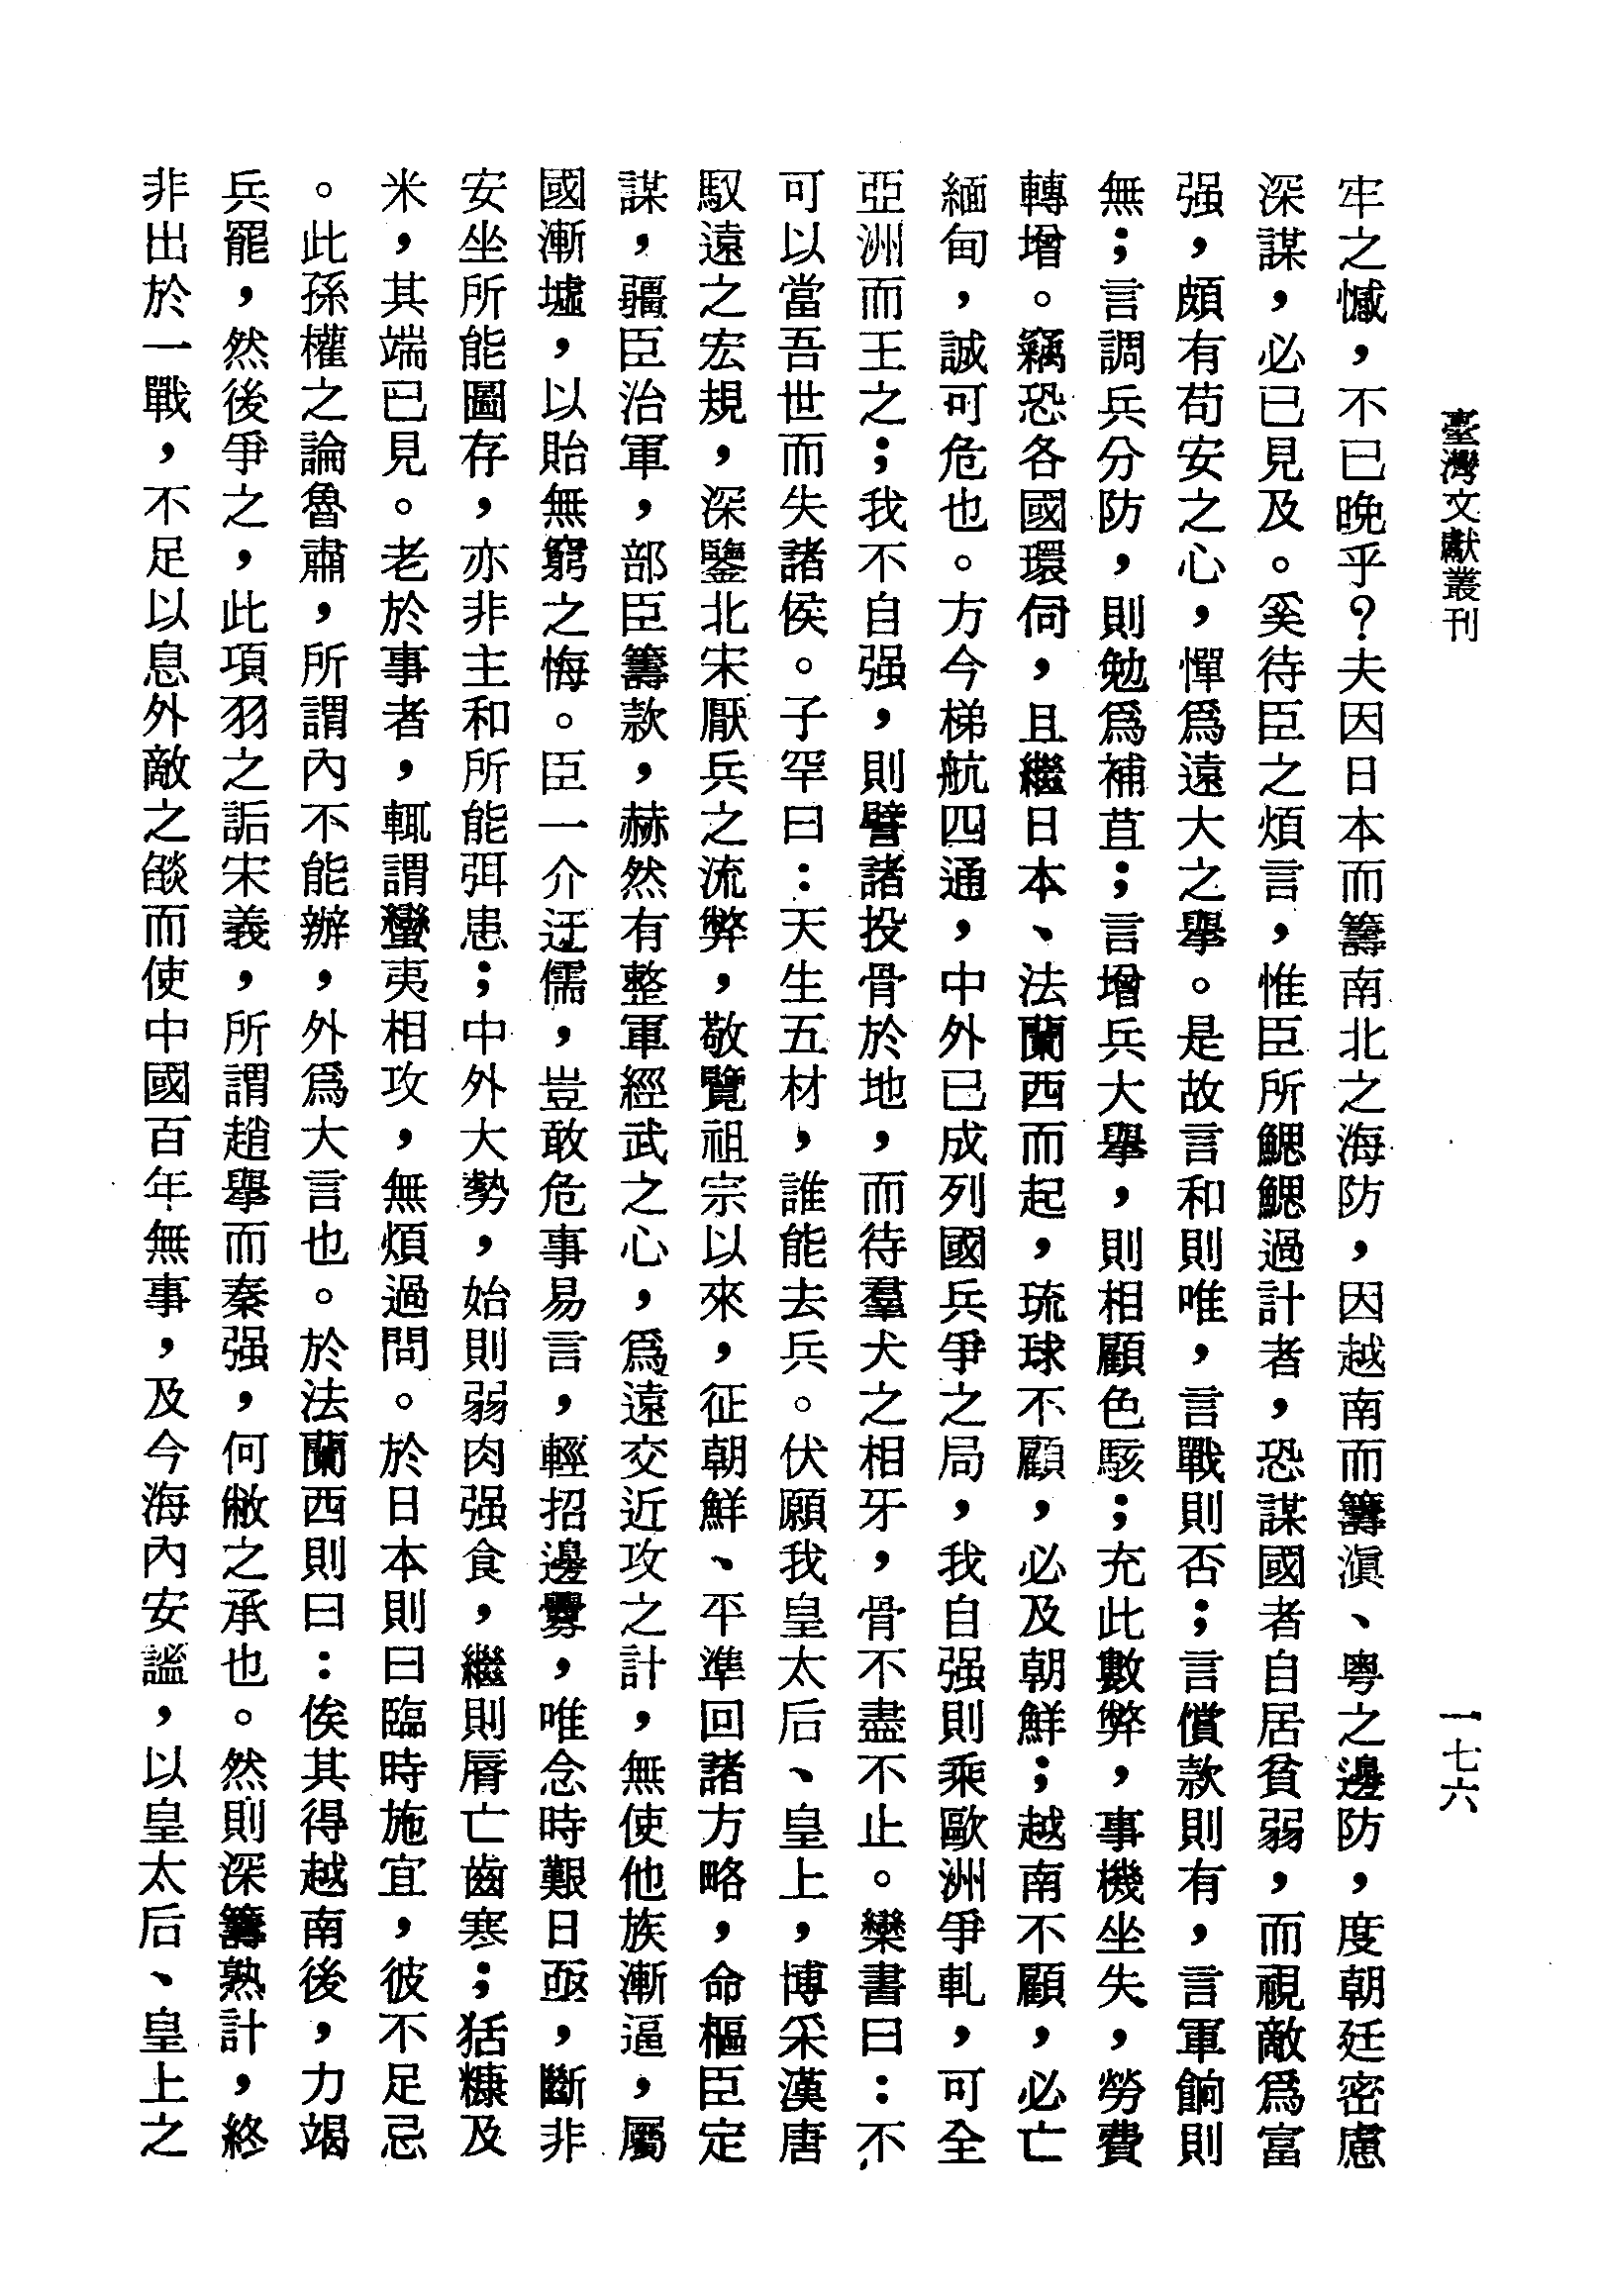 臺灣文獻叢刊
一七六
牢之憾，不已晚乎？夫因日本而籌南北之海防，因越南而籌滇、粵之邊防，度朝廷密慮
深謀，必已見及。奚待臣之煩言，惟臣所鰓鰓過計者，恐謀國者自居貧弱，而視敵爲富
强，頗有苟安之心，憚爲遠大之舉。是故言和則唯，言戰則否；言償款則有，言軍餉則
無；言調兵分防，則勉爲補苴；言增兵大舉，則相顧色駭；充此數弊，事機坐失，勞費
轉增。竊恐各國環伺，且繼日本、法蘭西而起，琉球不顧，必及朝鮮；越南不顧，必亡
緬甸，誠可危也。方今梯航四通，中外已成列國兵爭之局，我自强則乘歐洲爭軋，可全
亞洲而王之；我不自强，則譬諸投骨於地，而待羣犬之相牙，骨不盡不止。欒書曰：不
可以當吾世而失諸侯。子罕曰：天生五材，誰能去兵。伏願我皇太后、皇上，博采漢唐
馭遠之宏規，深鑒北宋厭兵之流弊，敬覽祖宗以來，征朝鮮、平準回諸方略，命樞臣定
謀，疆臣治軍，部臣籌款，赫然有整軍經武之心，爲遠交近攻之計，無使他族漸逼，屬
國漸墟，以貽無窮之悔。臣一介迂儒，豈敢危事易言，輕招邊釁，唯念時艱日亟，斷非
安坐所能圖存，亦非主和所能弭患；中外大勢，始則弱肉强食，繼則脣亡齒寒；狧糠及
米，其端已見。老於事者，輒謂蠻夷相攻，無煩過問。於日本則曰臨時施宜，彼不足忌
。此孫權之論魯肅，所謂內不能辦，外爲大言也。於法蘭西則曰：俟其得越南後，力竭
兵罷，然後爭之，此項羽之詬宋義，所謂趙舉而秦强，何敝之承也。然則深籌熟計，終
非出於一戰，不足以息外敵之燄而使中國百年無事，及今海內安謐，以皇太后、皇上之